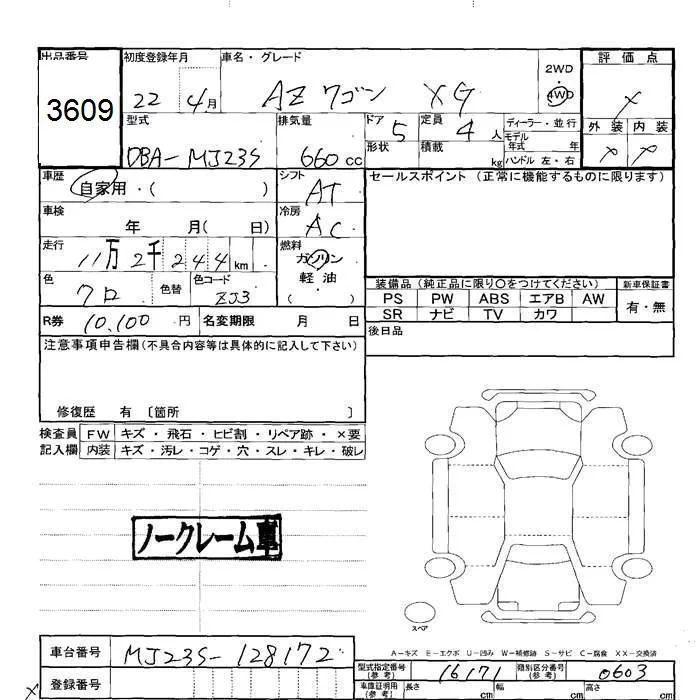 出品番号
3609
初度登録年月
22 4月
車名・グレード
AZ ワゴン XG
2WD
4WD
評価点
×
外装 内装
× ×
型式
DBA-MJ23S
排気量
660cc
ドア 5
形状
定員 4人
積載 kg
ディーラー・並行
モデル
年式 年
ハンドル 左・右
車歴
自家用・( )
シフト
AT
セールスポイント (正常に機能するものに限ります)
車検
年 月( 日)
冷房
AC
走行
11万 2千 244km
燃料
ガソリン
軽油
( )
色
クロ
色替
色コード
ZJ3
装備品 (純正品に限り○をつけてください)
新車保証書
PS PW ABS エアB AW
SR ナビ TV カワ
有・無
R券 10,100円
名変期限 月 日
後日品
注意事項申告欄(不具合内容等は具体的に記入して下さい)
修復歴 有 〔箇所 〕
検査員 FW キズ・飛石・ヒビ割・リペア跡・×要
記入欄 内装 キズ・汚レ・コゲ・穴・スレ・キレ・破レ
ノークレーム車
スペア
A-キズ E-エクボ U-凹み W-補修跡 S-サビ C-腐食 XX-交換済
車台番号
MJ23S-128172
型式指定番号
(参考)
16171
類別区分番号
(参考)
0603
登録番号
×
車庫証明用
(参考)
長さ cm
幅 cm
高さ cm